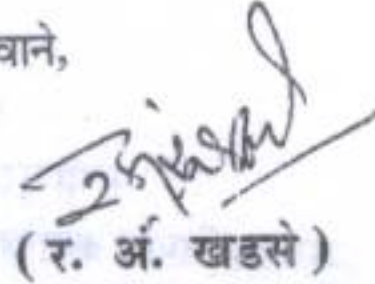 वाने,
( र. अं. खडसे )